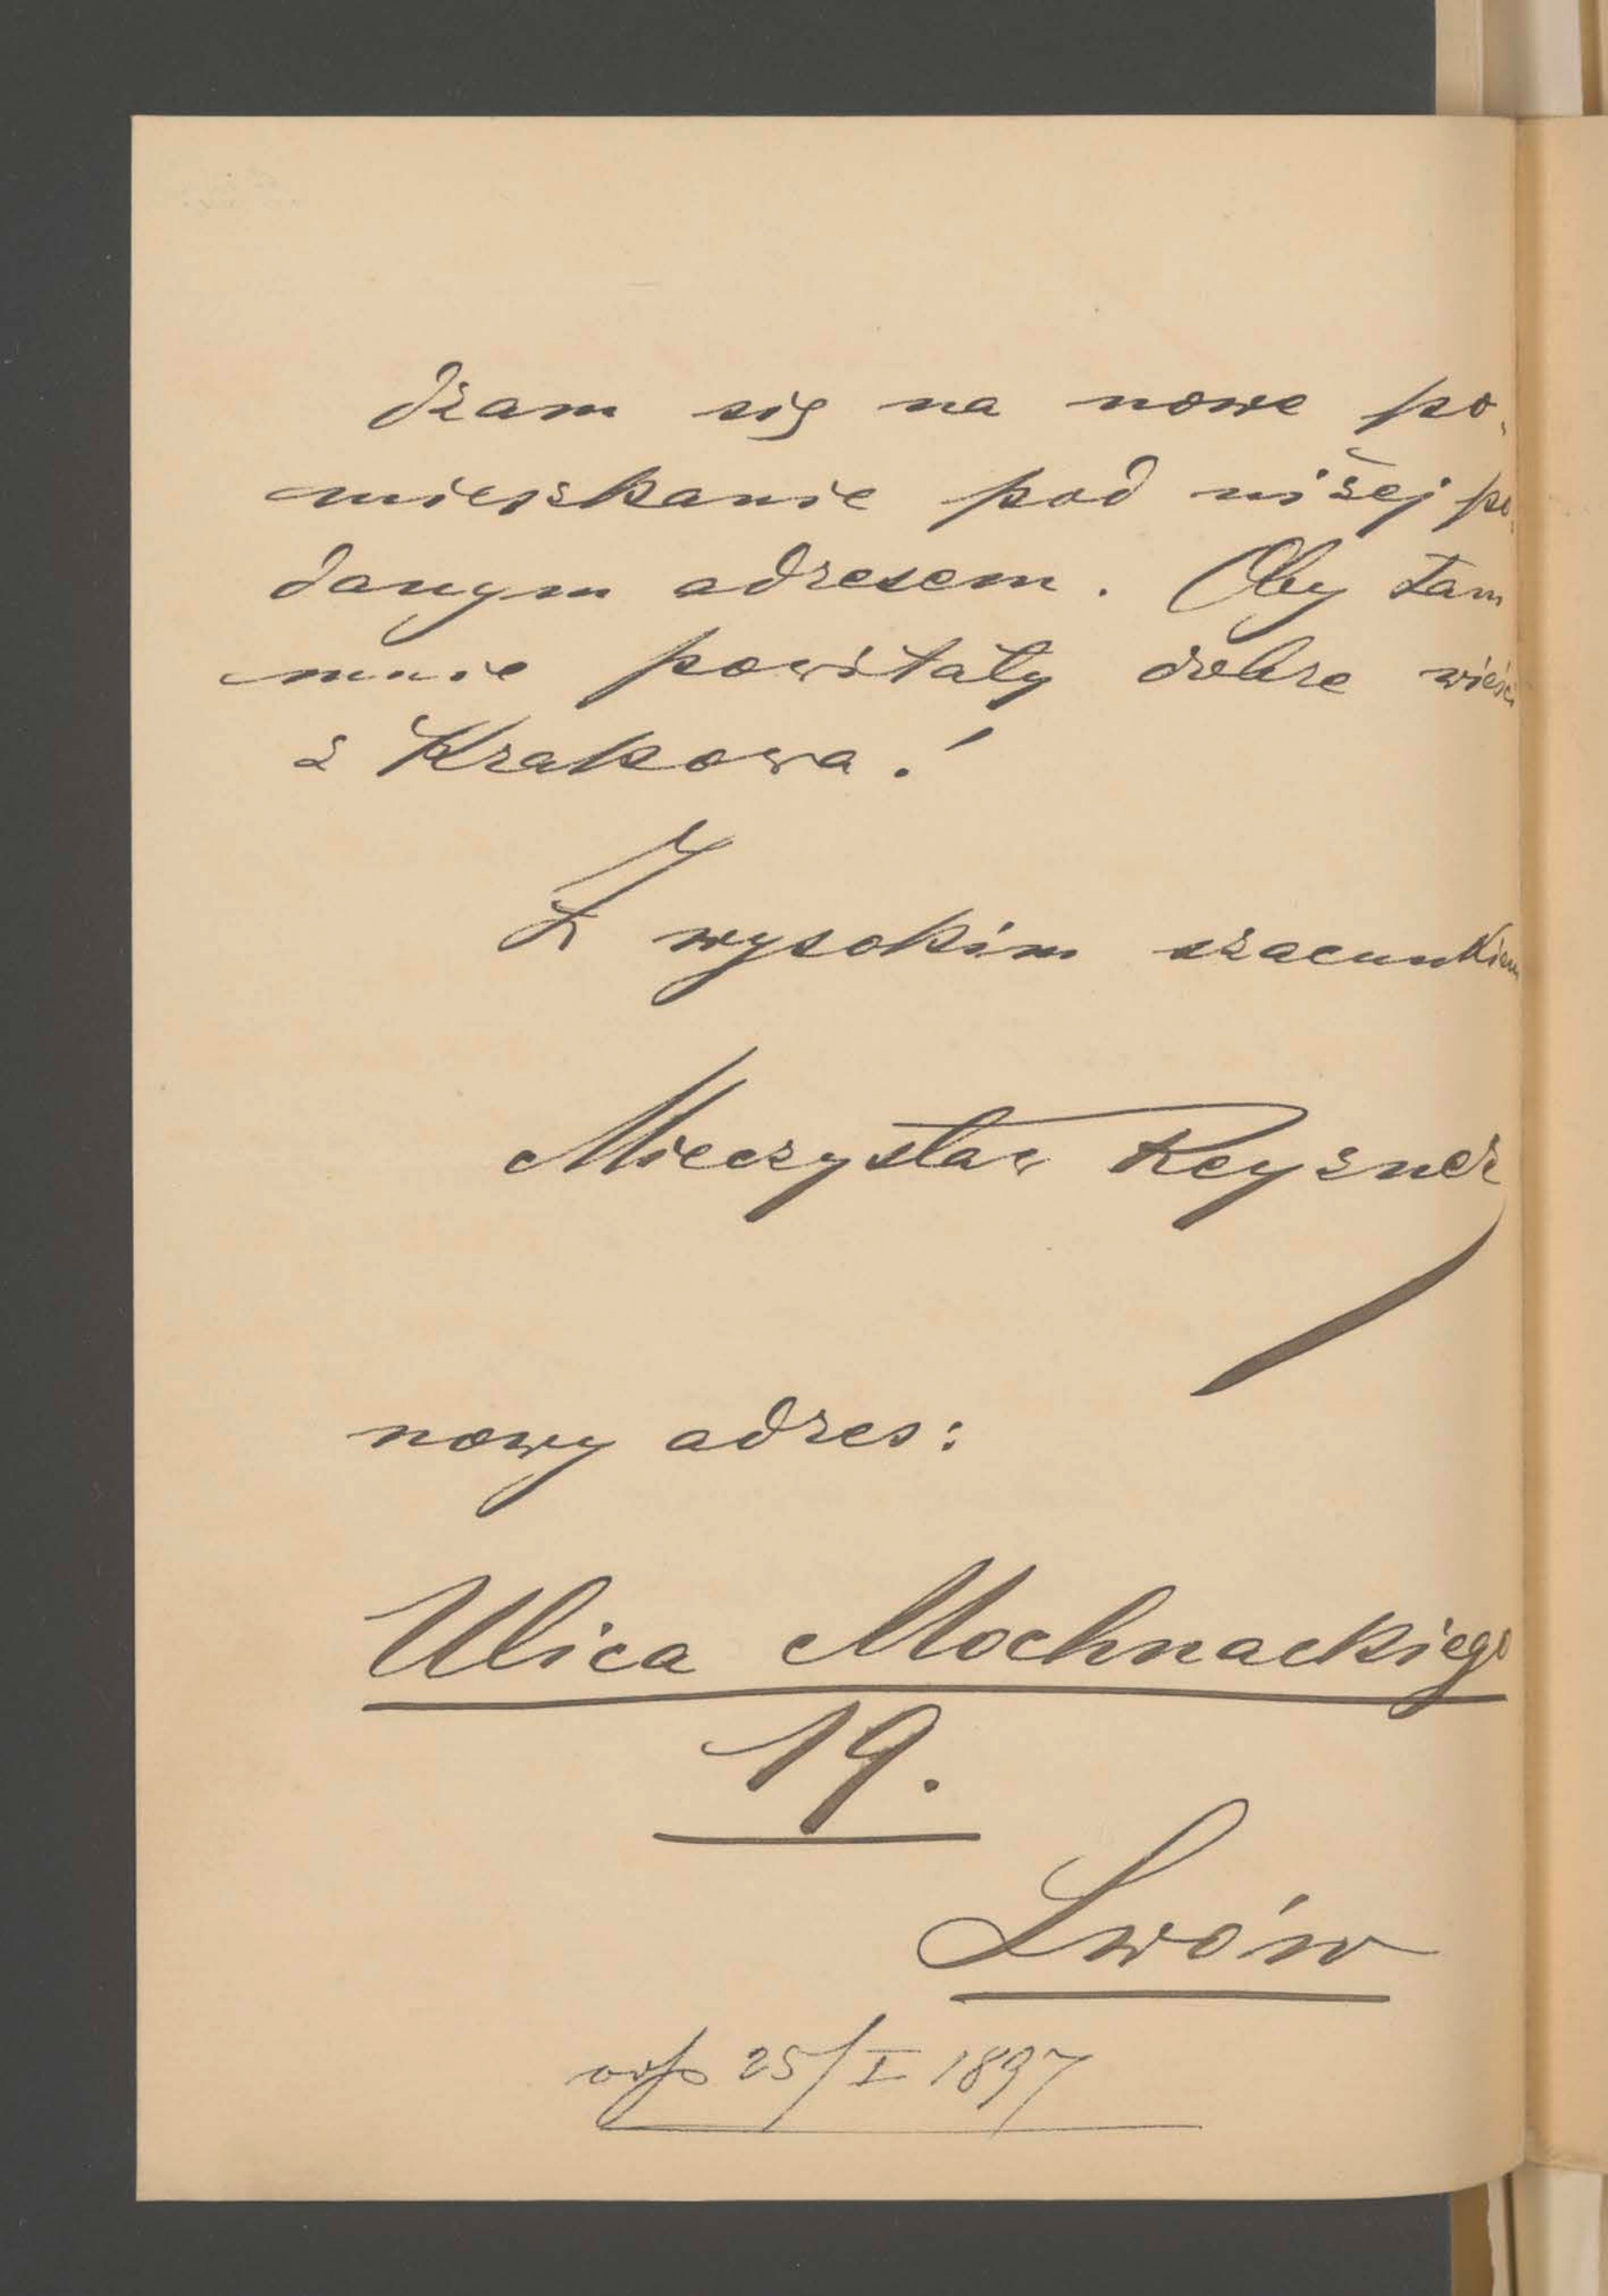 dzam się na nowe po-
mieszkanie pod niżej po-
danym adresem. Oby tam
mnie powitały dobre wieści
z Krakowa!
Z wysokim szacunkiem
Mieczysław Reyzner
nowy adres:
Ulica Mochnackiego
19.
Lwów
odp 25/I 1897